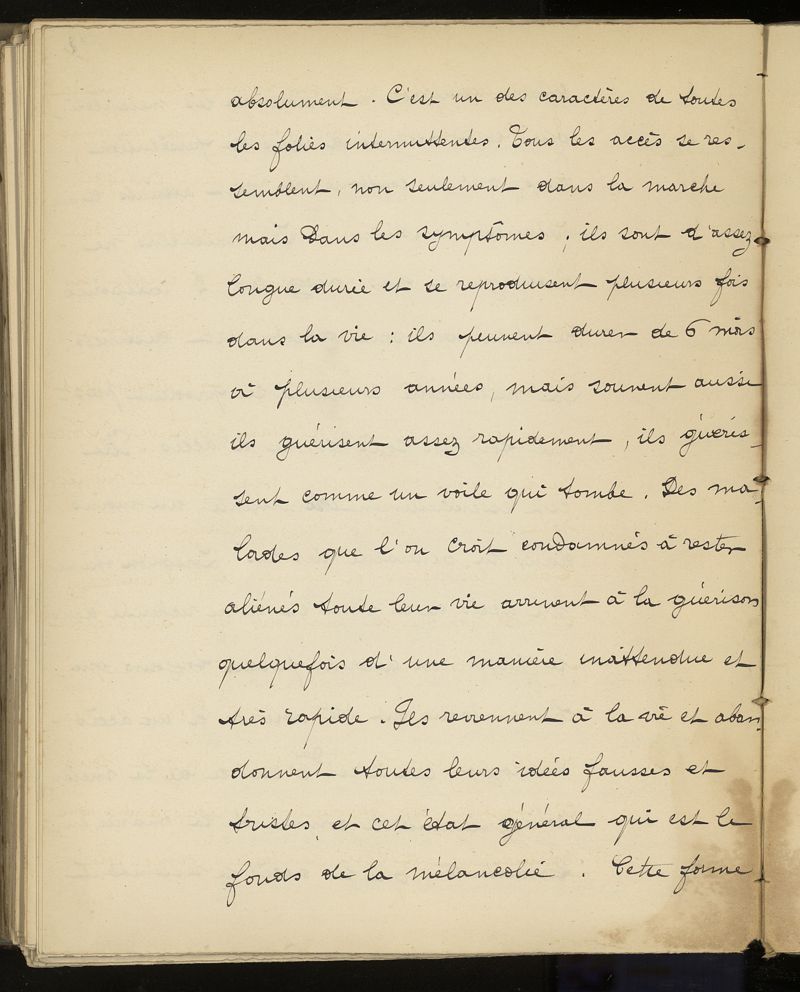 absolument. C'est un des caractères de toutes
les folies intermittentes. Tous les accès se res-
semblent, non seulement dans la marche
mais dans les symptômes ; ils sont d'assez
longue durée et se reproduisent plusieurs fois
dans la vie : ils peuvent durer de 6 mois
à plusieurs années, mais souvent aussi
ils guérissent assez rapidement, ils guéris-
sent comme un voile qui tombe. Des ma-
lades que l'on croit condamnés à rester
aliénés toute leur vie arrivent à la guérison
quelquefois d'une manière inattendue et
très rapide. Ils reviennent à la vie et aban-
donnent toutes leurs idées fausses et
tristes, et cet état général qui est le
fonds de la mélancolie. Cette forme